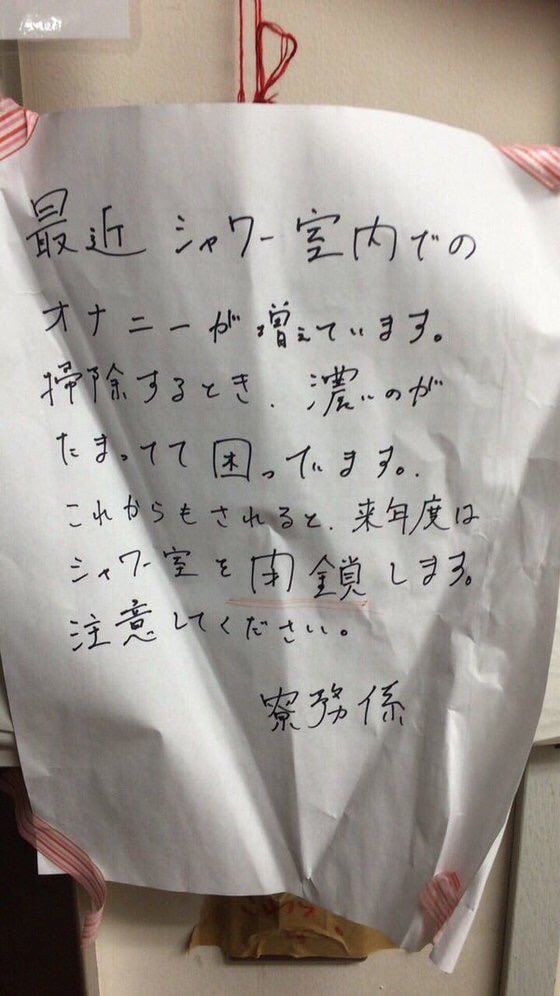 最近シャワー室内での
オナニーが増えています。
掃除するとき、濃いのが
たまってて困っています。
これからもされると、来年度は
シャワー室を閉鎖します。
注意してください。
寮務係